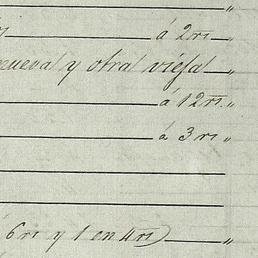 "
á 2 rs "
nueva y otra vieja "
á 12 rs. "
á 3 rs "
6 rs y 1 en 4 rs) "